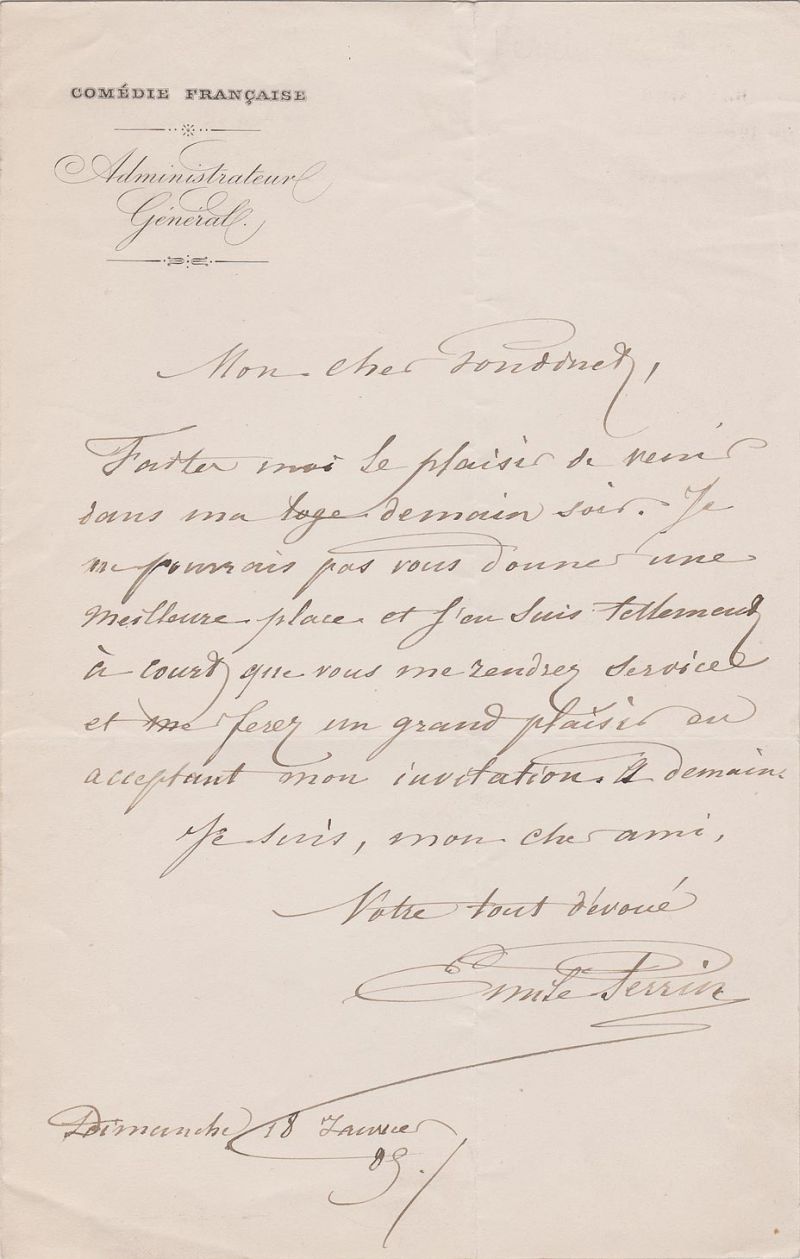 COMÉDIE FRANÇAISE
Administrateur
Général.
Mon cher Gondinet,
Faites moi le plaisir de venir
dans ma loge demain soir. Je
ne pourrais pas vous donner une
meilleure place et j'en suis tellement
à court que vous me rendrez service
et me ferez un grand plaisir en
acceptant mon invitation. A demain.
Je suis, mon cher ami,
Votre tout dévoué
Emile Perrin
Dimanche 18 Janvier
85.